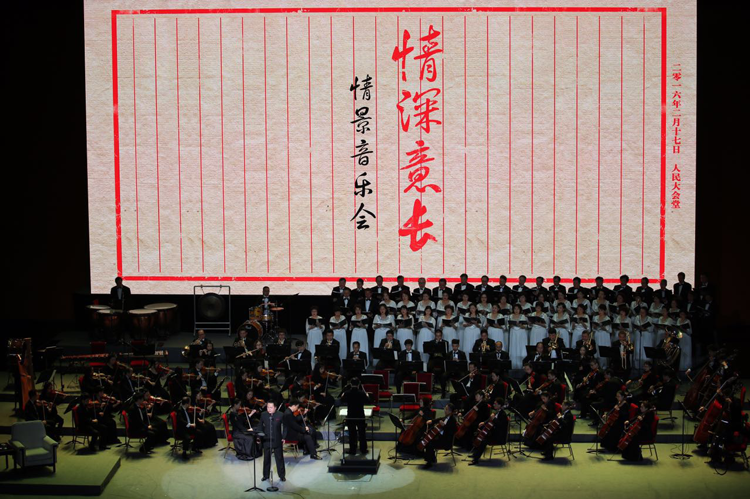 二零一六年二月十七日 人民大会堂
情深意长
情景音乐会